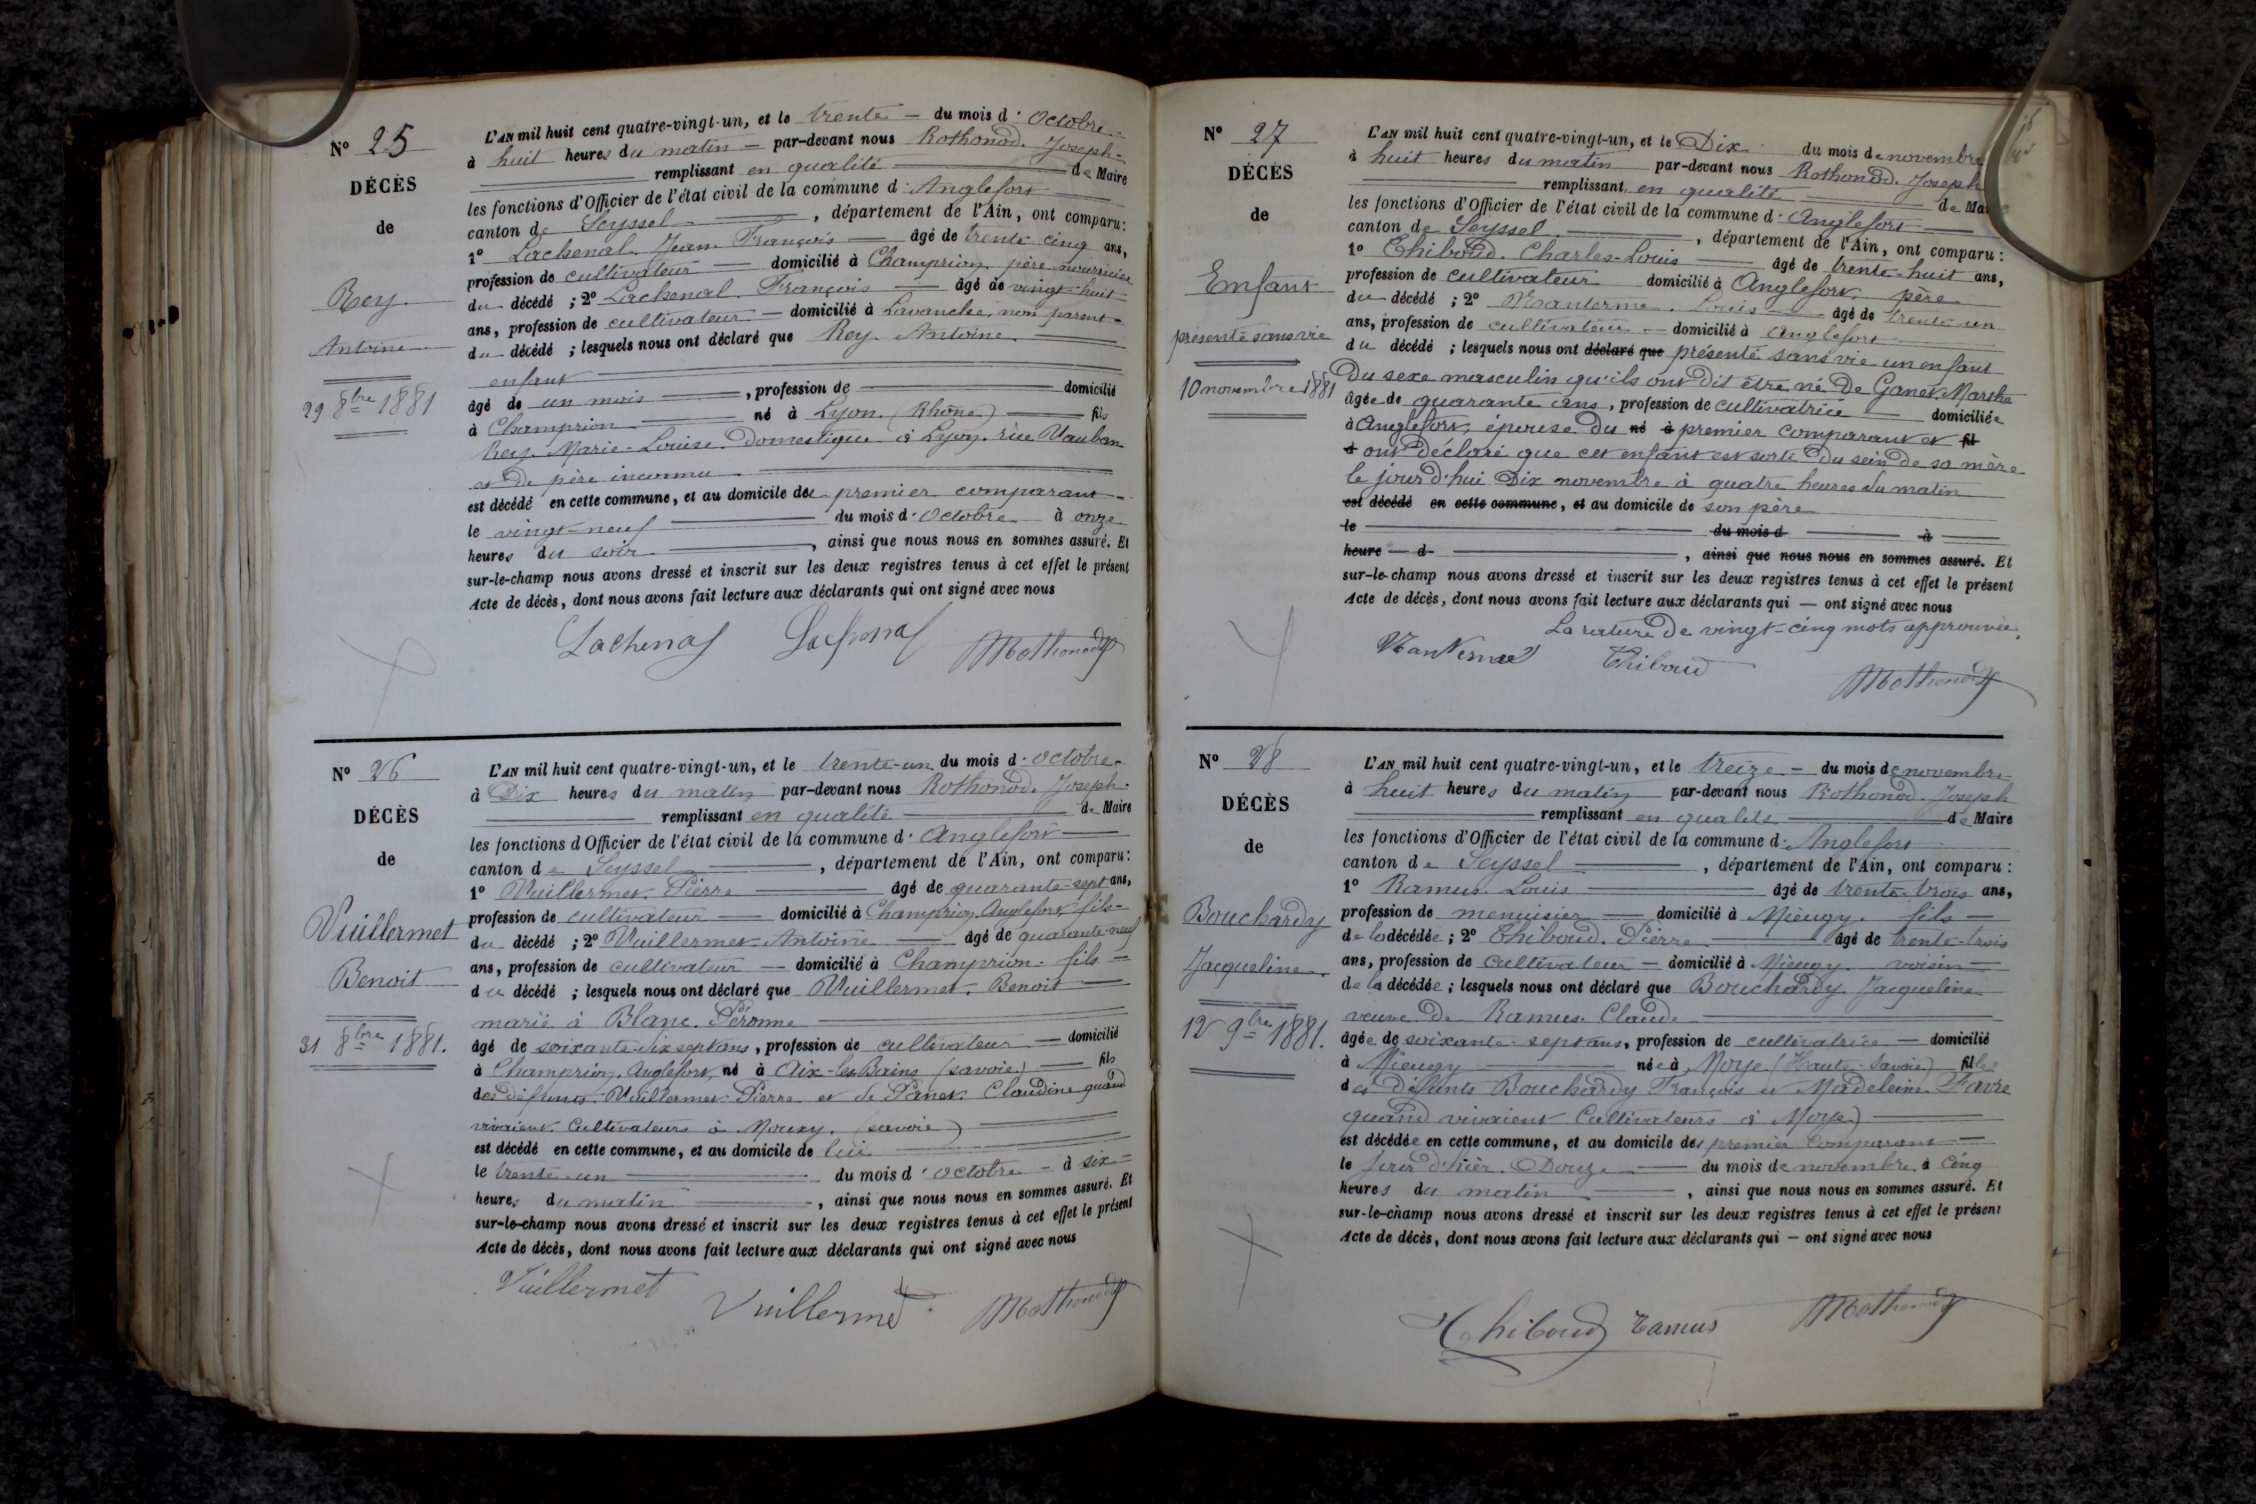 Nº 25
DÉCÈS
de
Rey
Antoine
29 8bre 1881
L'AN mil huit cent quatre-vingt-un, et le trente du mois d'Octobre
à huit heures du matin par-devant nous Rothonod Joseph
remplissant en qualité de Maire
les fonctions d'Officier de l'état civil de la commune d'Anglefort
canton de Seyssel, département de l'Ain, ont comparu:
1º Lachenal Jean François âgé de trente cinq ans,
profession de cultivateur domicilié à Champrion père nourricier
du décédé ; 2º Lachenal François âgé de vingt-huit
ans, profession de cultivateur domicilié à Lavanche, non parent
du décédé ; lesquels nous ont déclaré que Rey Antoine
enfant
âgé de un mois, profession de domicilié
à Champrion né à Lyon (Rhône) fils
Rey Marie-Louise Domestique à Lyon rue Vauban
et de père inconnu
est décédé en cette commune, et au domicile du premier comparant
le vingt-neuf du mois d'Octobre à onze
heures du soir, ainsi que nous nous en sommes assuré. Et
sur-le-champ nous avons dressé et inscrit sur les deux registres tenus à cet effet le présent
Acte de décès, dont nous avons fait lecture aux déclarants qui ont signé avec nous
Lachenal Lachenal Rothonod
Nº 26
DÉCÈS
de
Vuillermet
Benoit
31 8bre 1881.
L'AN mil huit cent quatre-vingt-un, et le trente-un du mois d'Octobre
à Dix heures du matin par-devant nous Rothonod Joseph
remplissant en qualité de Maire
les fonctions d'Officier de l'état civil de la commune d'Anglefort
canton de Seyssel, département de l'Ain, ont comparu:
1º Vuillermet Pierre âgé de quarante-sept ans,
profession de cultivateur domicilié à Champrion, Anglefort, fils
du décédé ; 2º Vuillermet Antoine âgé de quarante-neuf
ans, profession de cultivateur domicilié à Champrion fils
du décédé ; lesquels nous ont déclaré que Vuillermet Benoit
marié à Blanc Péronne
âgé de soixante-dix sept ans, profession de cultivateur domicilié
à Champrion, Anglefort, né à Aix-les-Bains (savoie) fils
des défunts Vuillermet Pierre et de Panet Claudine quand
vivaient Cultivateurs à Mouxy (savoie)
est décédé en cette commune, et au domicile de lui
le trente-un du mois d'octobre à six
heures du matin, ainsi que nous nous en sommes assuré. Et
sur-le-champ nous avons dressé et inscrit sur les deux registres tenus à cet effet le présent
Acte de décès, dont nous avons fait lecture aux déclarants qui ont signé avec nous
Vuillermet Vuillermet Rothonod
Nº 27
DÉCÈS
de
Enfant
présenté sans vie
10 novembre 1881
L'AN mil huit cent quatre-vingt-un, et le Dix du mois de novembre
à huit heures du matin par-devant nous Rothonod Joseph
remplissant en qualité de Maire
les fonctions d'Officier de l'état civil de la commune d'Anglefort
canton de Seyssel, département de l'Ain, ont comparu:
1º Thiboud Charles-Louis âgé de trente-huit ans,
profession de cultivateur domicilié à Anglefort père
du décédé ; 2º Manterme Louis âgé de trente un
ans, profession de cultivateur domicilié à Anglefort
du décédé ; lesquels nous ont déclaré que présenté sans vie un enfant
Du sexe masculin qu'ils ont Dit être né De Ganet Martha
âgée de quarante ans, profession de cultivatrice domiciliée
à Anglefort, épouse Du né à premier comparant et fil
d ont Déclaré que cet enfant est sorti Du sein De sa mère
le jour d'hui Dix novembre à quatre heures du matin
est décédé en cette commune, et au domicile de son père
le du mois d à
heure d, ainsi que nous nous en sommes assuré. Et
sur-le-champ nous avons dressé et inscrit sur les deux registres tenus à cet effet le présent
Acte de décès, dont nous avons fait lecture aux déclarants qui — ont signé avec nous
La rature De vingt-cinq mots approuvée.
Thiboud Rothonod
Nº 28
DÉCÈS
de
Bouchardy
Jacqueline
12 9bre 1881.
L'AN mil huit cent quatre-vingt-un, et le treize du mois de novembre
à huit heures du matin par-devant nous Rothonod Joseph
remplissant en qualité de Maire
les fonctions d'Officier de l'état civil de la commune d'Anglefort
canton de Seyssel, département de l'Ain, ont comparu:
1º Ramus Louis âgé de trente-trois ans,
profession de menuisier domicilié à Mieugy fils
de la décédée ; 2º Thiboud Pierre âgé de trente-trois
ans, profession de cultivateur domicilié à Mieugy voisin
de la décédée ; lesquels nous ont déclaré que Bouchardy Jacqueline
veuve De Ramus Claude
âgée de soixante-sept ans, profession de cultivatrice domicilié
à Mieugy née à Moye (Haute-Savoie) fille
des Défunts Bouchardy François et Madeleine Favre
quand vivaient Cultivateurs à Moye)
est décédée en cette commune, et au domicile du premier Comparant
le jour d'hier Douze du mois de novembre à cinq
heures du matin, ainsi que nous nous en sommes assuré. Et
sur-le-champ nous avons dressé et inscrit sur les deux registres tenus à cet effet le présent
Acte de décès, dont nous avons fait lecture aux déclarants qui — ont signé avec nous
Thiboud Ramus Rothonod